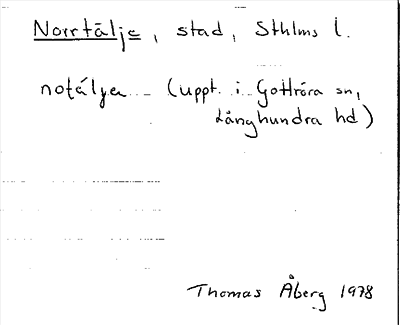 Norrtälje, stad, Sthlms l.
noţálya (uppt. i Gottröra sn,
Långhundra hd)
Thomas Åberg 1978